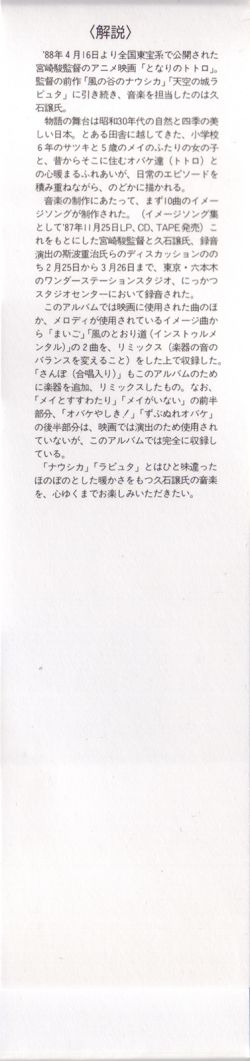 〈解説〉
'88年4月16日より全国東宝系で公開された
宮崎駿監督のアニメ映画「となりのトトロ」。
監督の前作「風の谷のナウシカ」「天空の城ラ
ピュタ」に引き続き、音楽を担当したのは久
石譲氏。
物語の舞台は昭和30年代の自然と四季の美
しい日本。とある田舎に越してきた、小学校
6年のサツキと5歳のメイのふたりの女の子
と、昔からそこに住むオバケ達（トトロ）と
の心暖まるふれあいが、日常のエピソードを
積み重ねながら、のどかに描かれる。
音楽の制作にあたって、まず10曲のイメー
ジソングが制作された。（イメージソング集
として'87年11月25日LP、CD、TAPE発売）こ
れをもとにした宮崎駿監督と久石譲氏、録音
演出の斯波重治氏らのディスカッションのの
ち2月25日から3月26日まで、東京・六本木
のワンダーステーションスタジオ、にっかつ
スタジオセンターにおいて録音された。
このアルバムでは映画に使用された曲のほ
か、メロディが使用されているイメージ曲か
ら「まいご」「風のとおり道（インストゥルメ
ンタル）」の2曲を、リミックス（楽器の音の
バランスを変えること）をした上で収録した。
「さんぽ（合唱入り）」もこのアルバムのため
に楽器を追加、リミックスしたもの。なお、
「メイとすすわたり」「メイがいない」の前半
部分、「オバケやしき！」「ずぶぬれオバケ」
の後半部分は、映画では演出のため使用され
ていないが、このアルバムでは完全に収録し
ている。
「ナウシカ」「ラピュタ」とはひと味違った
ほのぼのとした暖かさをもつ久石譲氏の音楽
を、心ゆくまでお楽しみいただきたい。